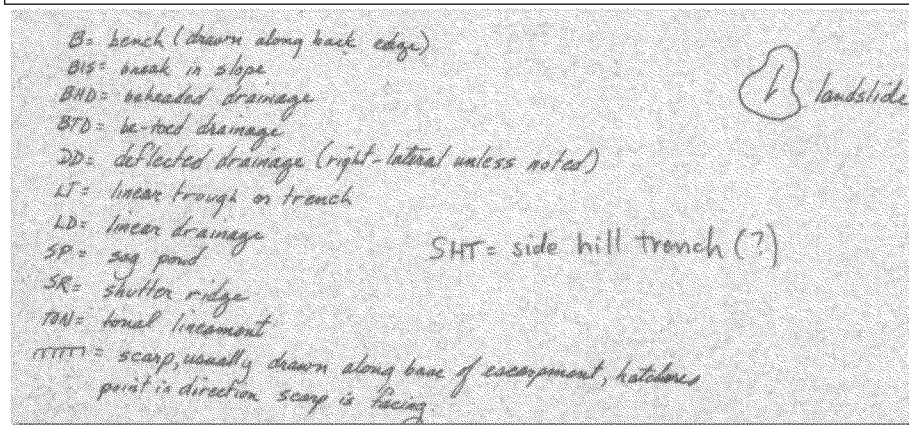 B= bench (drawn along back edge)
BIS= break in slope
BHD= beheaded drainage
BTD= be-toed drainage
DD= deflected drainage (right-lateral unless noted)
LT= linear trough or trench
LD= linear drainage
SP= sag pond
SR= shutter ridge
TON= tonal lineament
= scarp, usually drawn along base of escarpment, hatchures
point in direction scarp is facing
landslide
SHT= side hill trench (?)